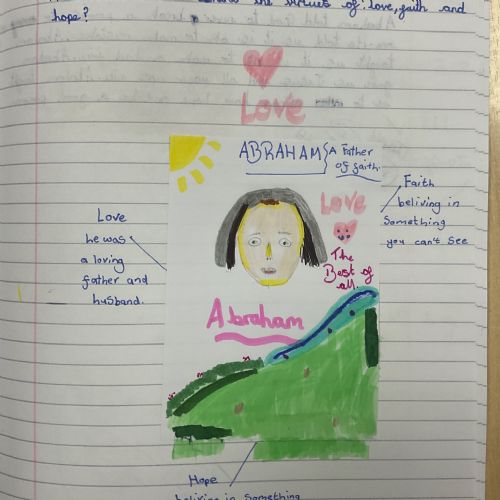 the virtues of: love, faith and
hope?
Love
ABRAHAM
A Father
of faith.
Love
The
Best of
all.
Abraham
Love
he was
a loving
father and
husband.
Faith
beliving in
Something
you can't see
Hope
beliving in Something